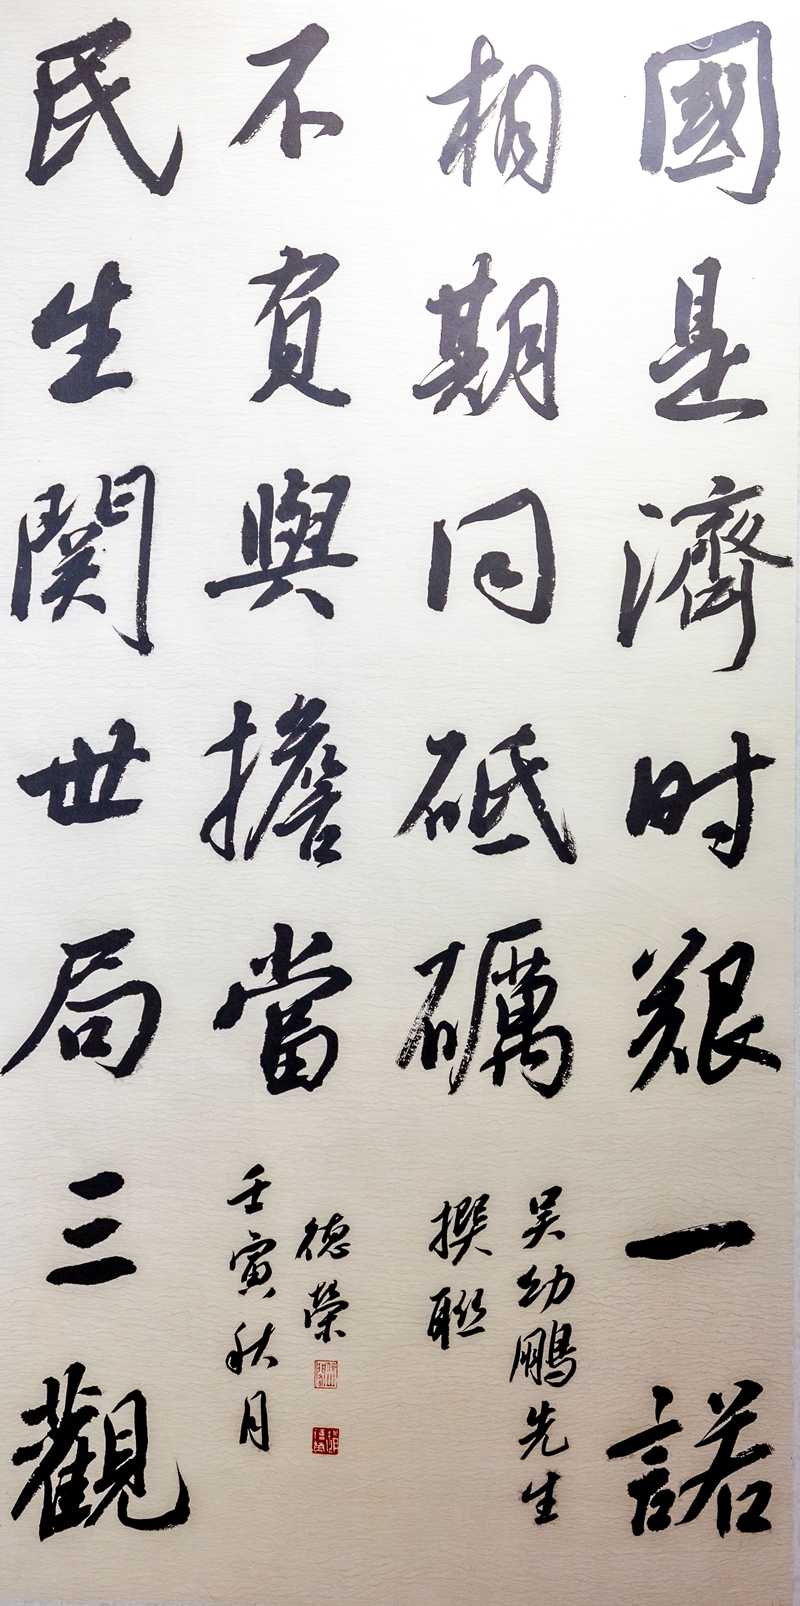 國是濟时艱一諾
相期同砥礪
吴幼鵬先生
撰聯
民生関世局三觀
不負與擔當
壬寅秋月
德榮